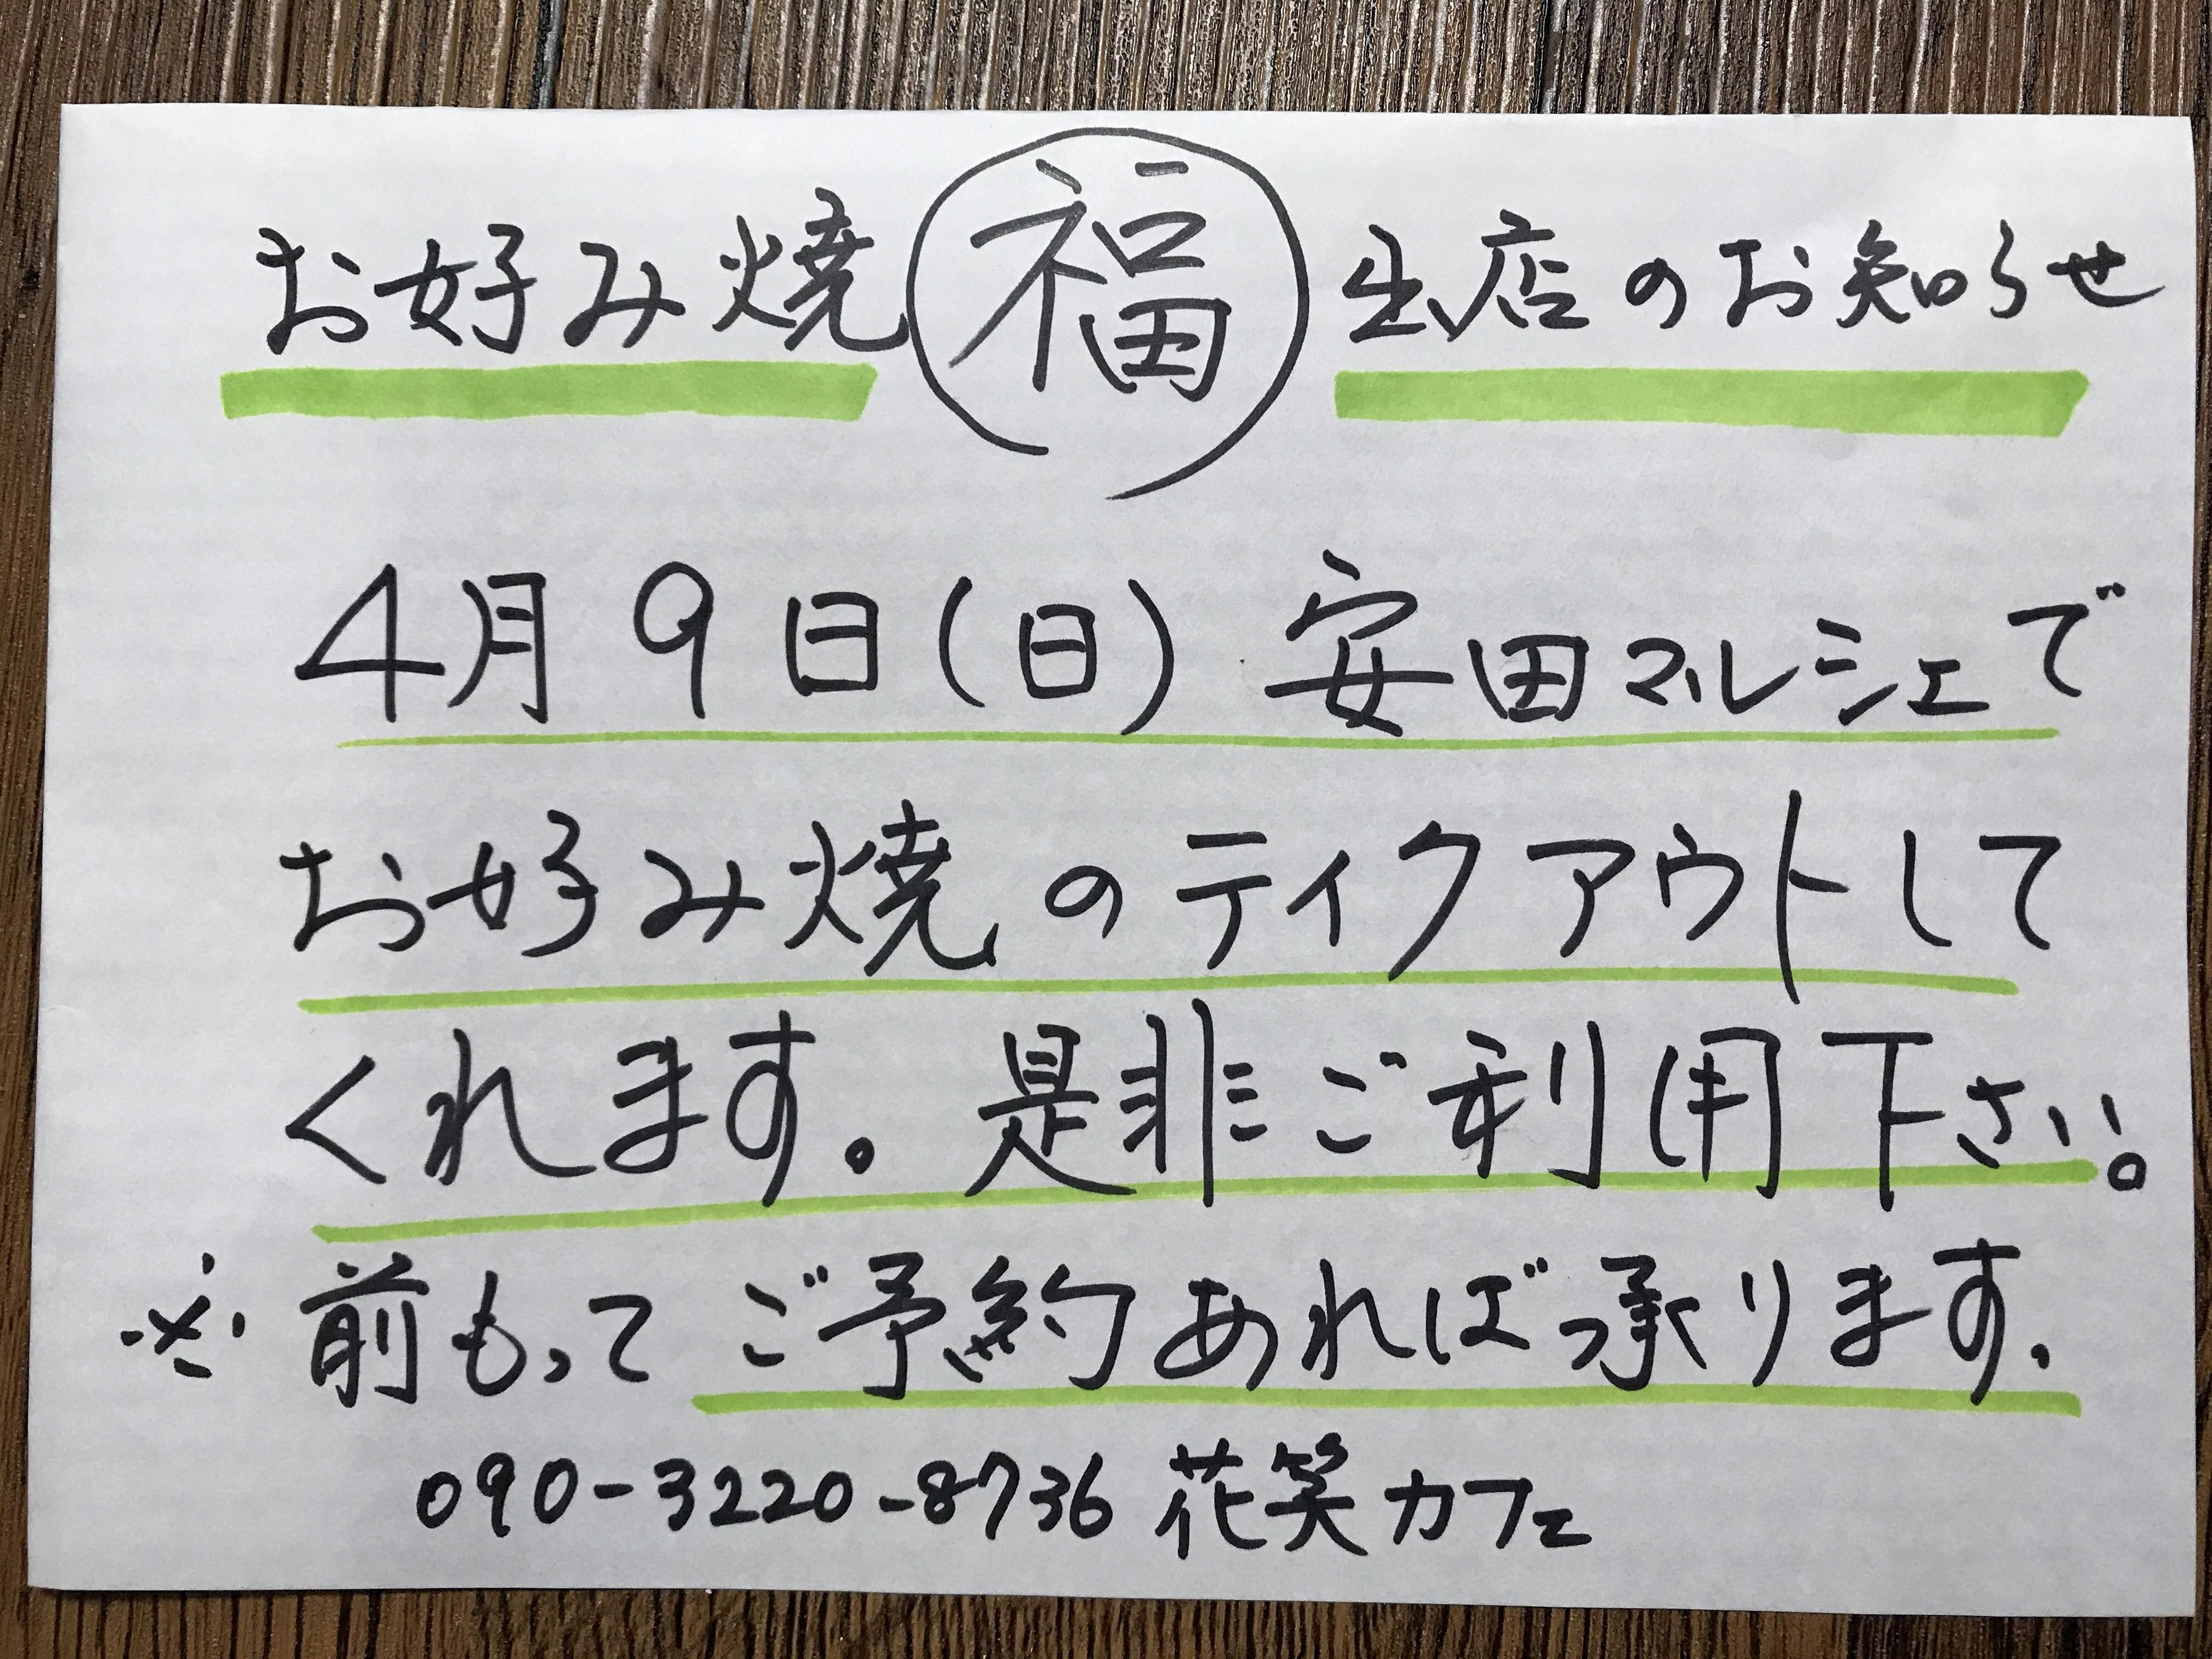 お好み焼 福 出店のお知らせ
4月9日(日) 安田マルシェで
お好み焼のテイクアウトして
くれます。是非ご利用下さい。
※前もってご予約あれば承ります.
090-3220-8736 花笑カフェ